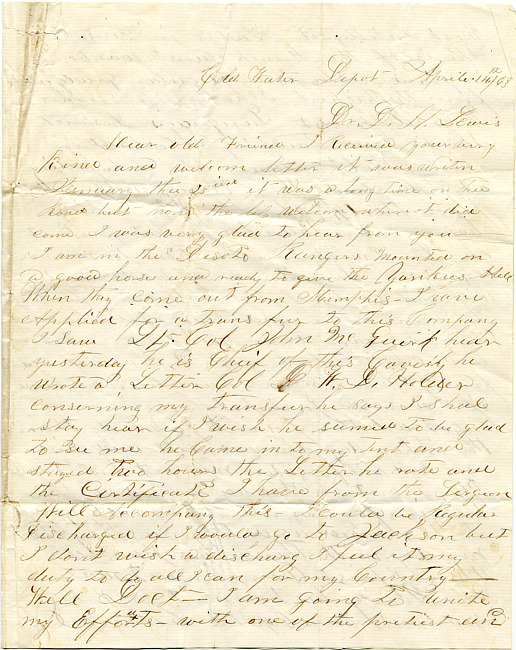 Cold Water Depot Aprile 14th/63
Dr. D. H. Lewis
Dear old Friend I Received your very
Kind and welcom letter it was writen
Febuary the it was a long time on the
Road but none the less welcom when it did
come I was very glad to hear from you
I am in the Desoto Rangers mounted on
a good horse and ready to give the Yankees Hell
When they come out from Memphis - I have
Applied for a transfur to this Company
I Saw Lt. Col John Mc Quirk hear
yesterday he is Chief of this Cavelry he
wrote a Letter Col W. D. Holder
concerning my transfer he says I shal
stay hear if I wish he seemed to be glad
to see me he came in to my tent and
stayed two hours the Letter he rote and
the Certificate I have from the Surgeon
Will accompany this - I could be Regular
Discharged if I would go to Jackson but
I dont wish a discharg I feel it my
duty to do all I can for my Country -
Well Doct - I am going to unite
my Efforts - with one of the pretiest and